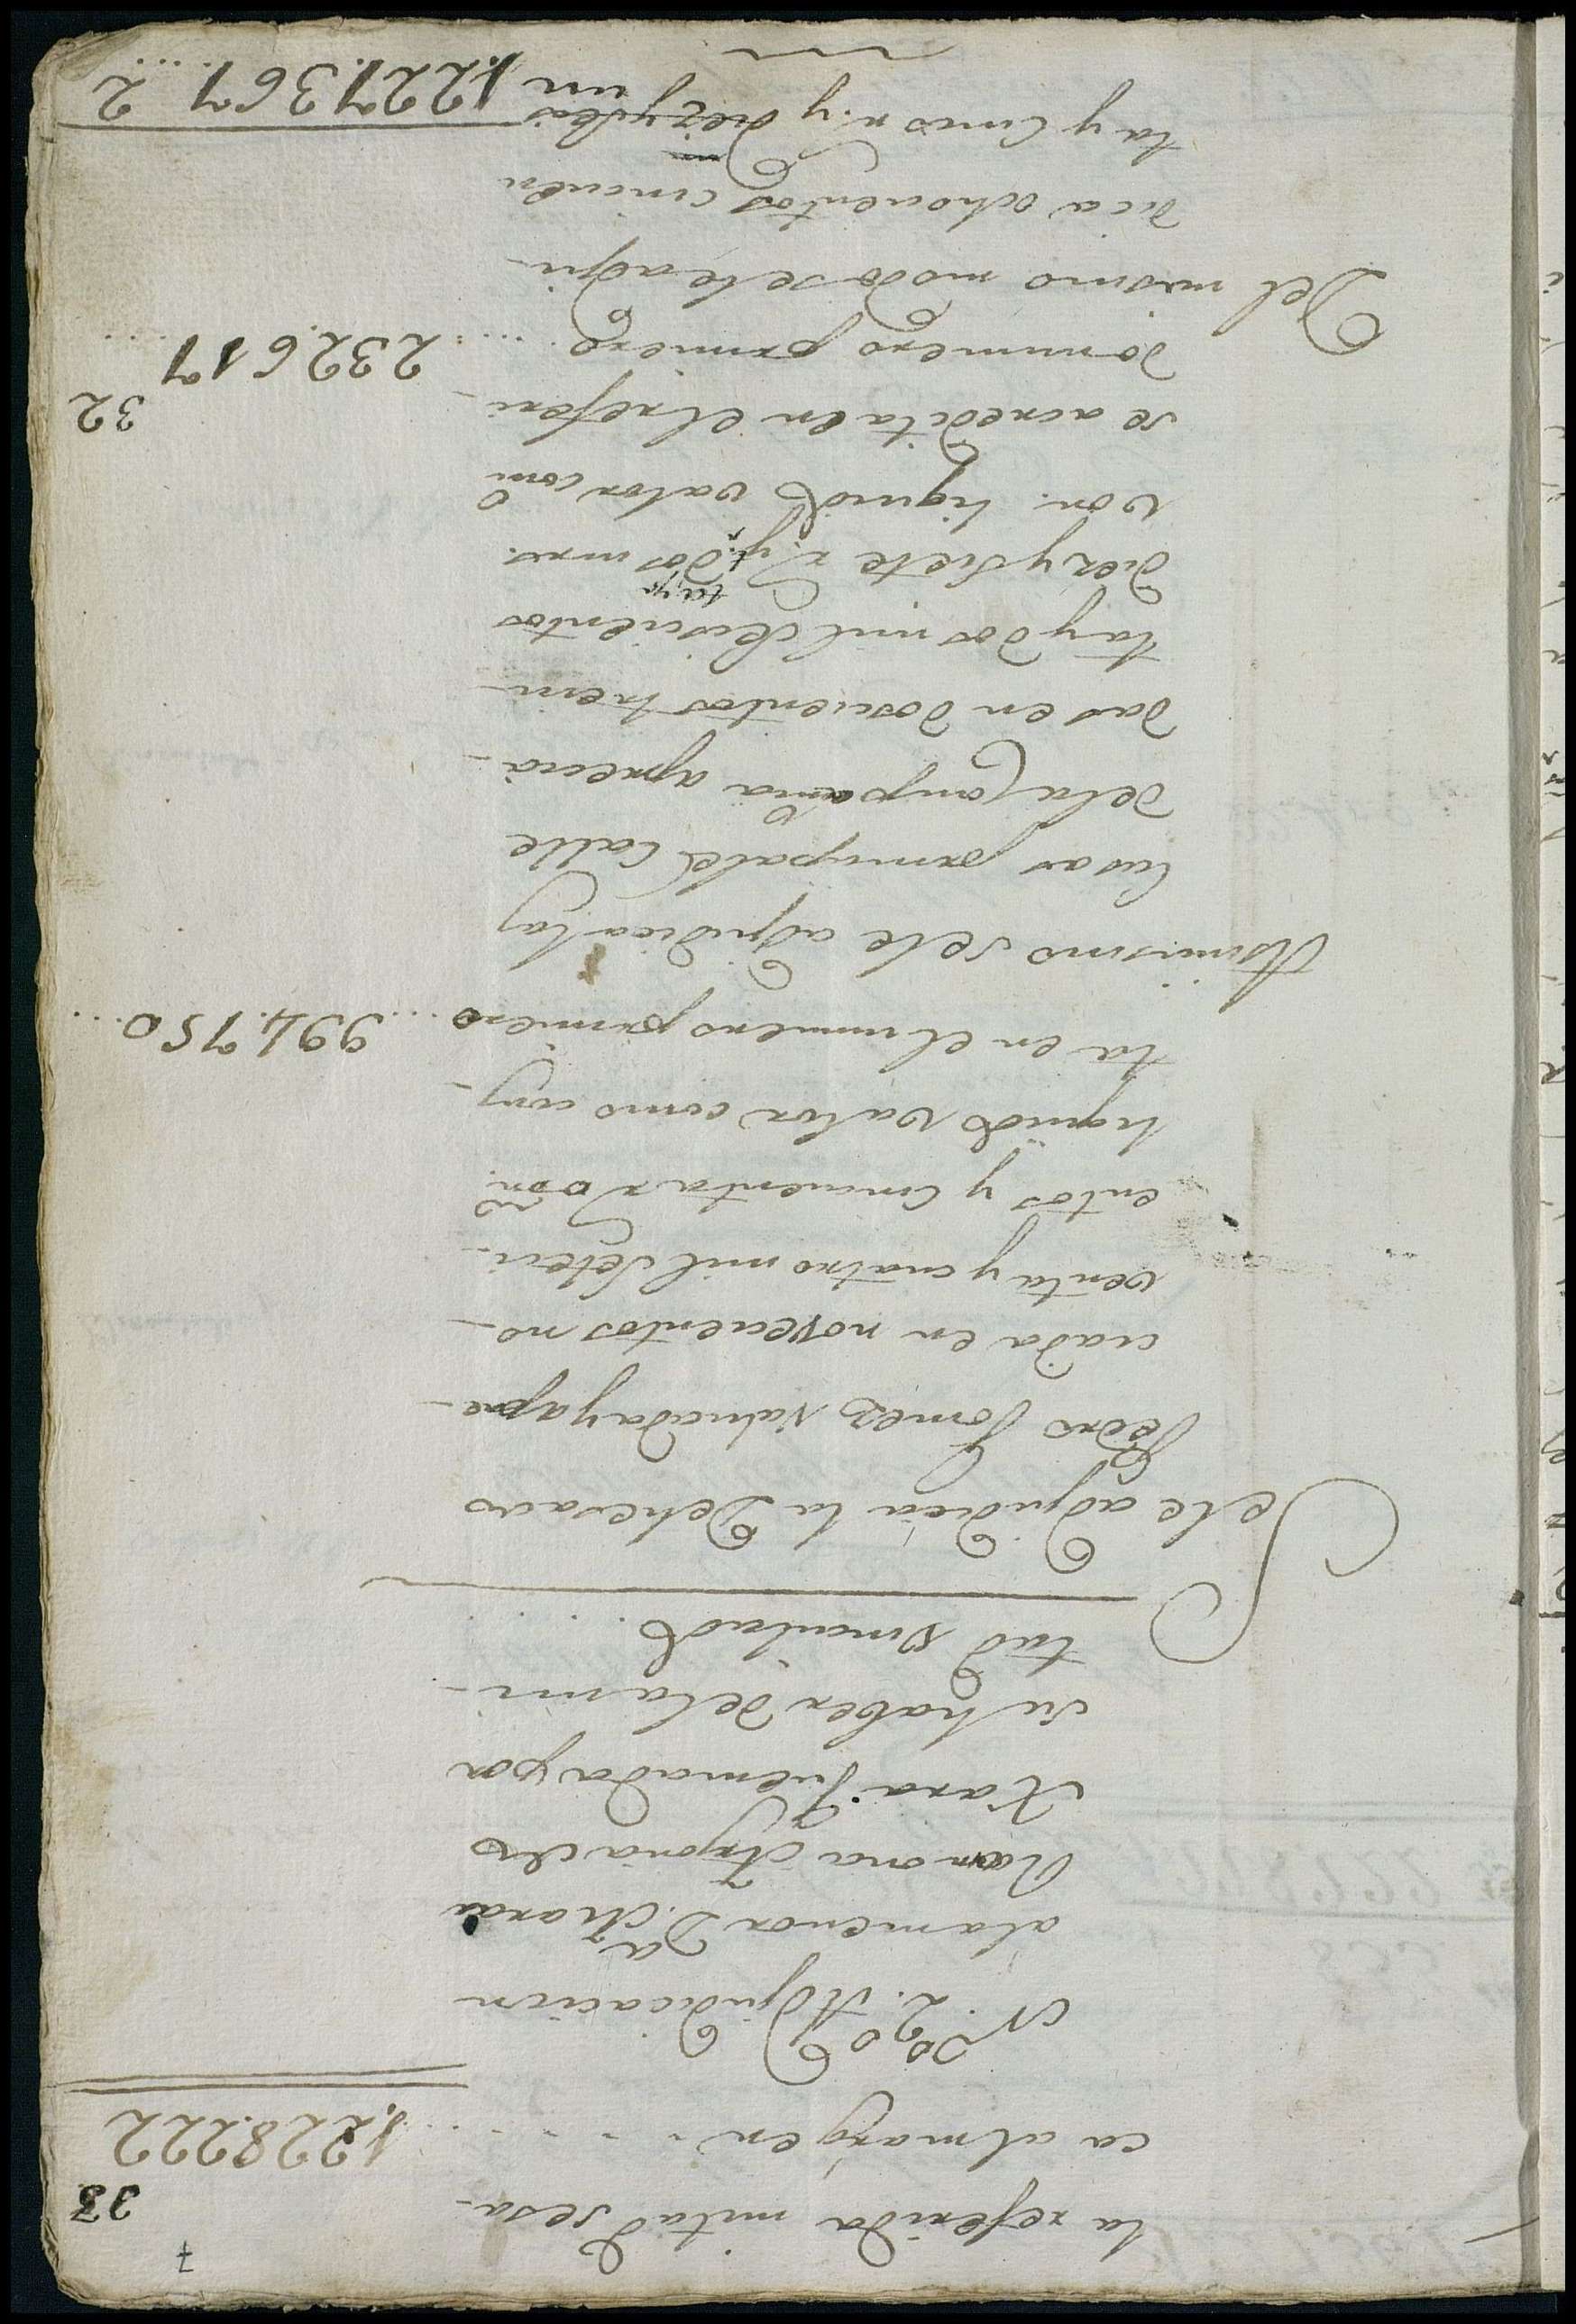 7
la referida mitad se sa- 33
ca al margen . . . . . . 1,228.222
N.º 2.º Adjudicacion
a la menor D.ª Maria
Ramona Arjona de
Xara Quemada por
su haber de la mi-
tad vinculada . . .
Se le adjudica la Dehesa de
Pedro Gomez valuada y apre-
ciada en novecientos no-
venta y cuatro mil seteci-
entos y cincuenta r. von.
liquido valor como cons-
ta en el numero primero . . . 994.750 . . .
Asimismo se le adjudica las
casas principales calle
de la Compañia aprecia-
das en doscientos trein-
ta y dos mil seiscientos
diez y siete r. y ta y dos mrs.
von. liquido valor como
se acredita en el referi- 32
do numero primero . . . 232.617 . . .
Del mismo modo se le adju-
dica ochocientos cincuen
ta y cinco r. y diez y seis un 1.227.367 2 . . .